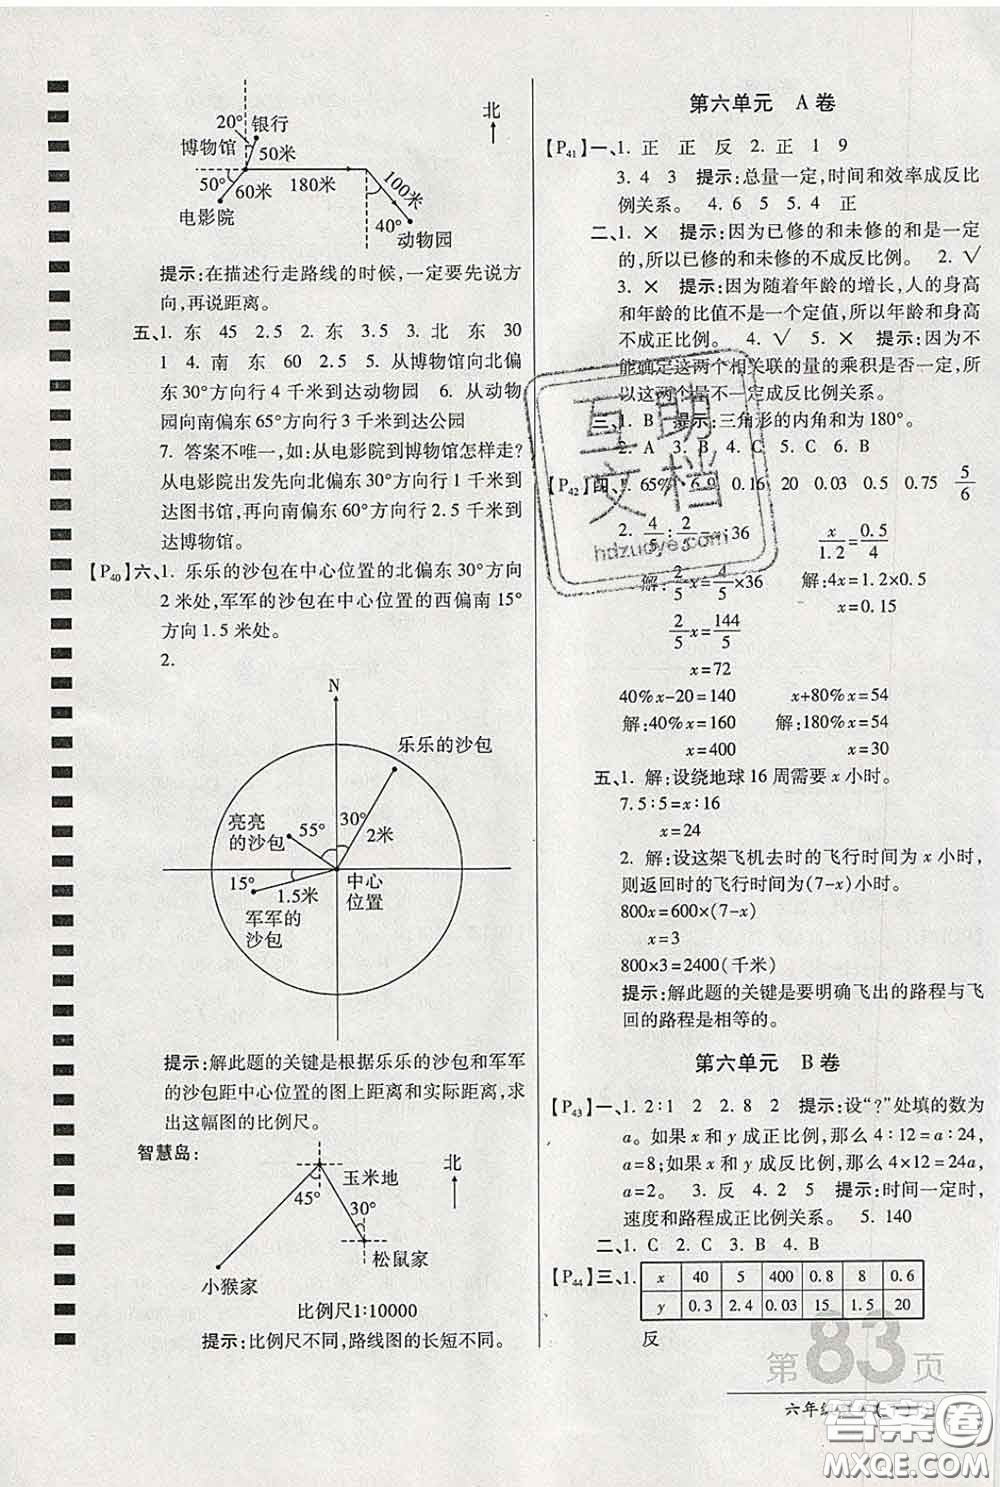 20°
银行
北
博物馆
50米
50°
60米
180米
100米
电影院
40°
动物园
提示:在描述行走路线的时候,一定要先说方
向,再说距离。
五、1. 东 45 2.5 2. 东 3.5 3. 北 东 30
1 4. 南 东 60 2.5 5. 从博物馆向北偏
东30°方向行4千米到达动物园 6. 从动物
园向南偏东65°方向行3千米到达公园
7. 答案不唯一,如:从电影院到博物馆怎样走?
从电影院出发先向北偏东30°方向行1千米到
达图书馆,再向南偏东60°方向行2.5千米到
达博物馆。
【P40】六、1. 乐乐的沙包在中心位置的北偏东30°方向
2米处,军军的沙包在中心位置的西偏南15°
方向1.5米处。
2.
N
乐乐的沙包
亮亮
的沙包
55°
30°
2米
15°
1.5米
中心
位置
军军的
沙包
提示:解此题的关键是根据乐乐的沙包和军军
的沙包距中心位置的图上距离和实际距离,求
出这幅图的比例尺。
智慧岛:
玉米地
北
45°
30°
松鼠家
小猴家
比例尺1:10000
提示:比例尺不同,路线图的长短不同。
第六单元 A卷
【P41】一、1. 正 正 反 2. 正 1 9
3. 4 3 提示:总量一定,时间和效率成反比
例关系。 4. 6 5 5. 4 正
二、1. × 提示:因为已修的和未修的和是一定
的,所以已修的和未修的不成反比例。 2. √
3. × 提示:因为随着年龄的增长,人的身高
和年龄的比值不是一个定值,所以年龄和身高
不成正比例。 4. √ 5. × 提示:因为不
能确定这两个相关联的量的乘积是否一定,所
以这两个量不一定成反比例关系。
三、1. B 提示:三角形的内角和为180°。
2. A 3. B 4. C 5. C 6. B
【P42】四、1. 65% 6.9 0.16 20 0.03 0.5 0.75 5/6
2. 4/5:2/5=x:36 x/1.2=0.5/4
解:2/5x=4/5×36 解:4x=1.2×0.5
2/5x=144/5 x=0.15
x=72
40%x-20=140 x+80%x=54
解:40%x=160 解:180%x=54
x=400 x=30
五、1. 解:设绕地球16周需要x小时。
7.5:5=x:16
x=24
2. 解:设这架飞机去时的飞行时间为x小时,
则返回时的飞行时间为(7-x)小时。
800x=600×(7-x)
x=3
800×3=2400(千米)
提示:解此题的关键是要明确飞出的路程与飞
回的路程是相等的。
第六单元 B卷
【P43】一、1. 2:1 2 2. 8 2 提示:设“?”处填的数为
a。如果x和y成正比例,那么4:12=a:24,
a=8;如果x和y成反比例,那么4×12=24a,
a=2。 3. 反 4. 2 5 提示:时间一定时,
速度和路程成正比例关系。 5. 140
二、1. C 2. C 3. B 4. B
【P44】三、1. x 40 5 400 0.8 8 0.6
y 0.3 2.4 0.03 15 1.5 20
反
第83页
六年级
互助
文档
hdzuoye.com
答案卷
MXQE.COM